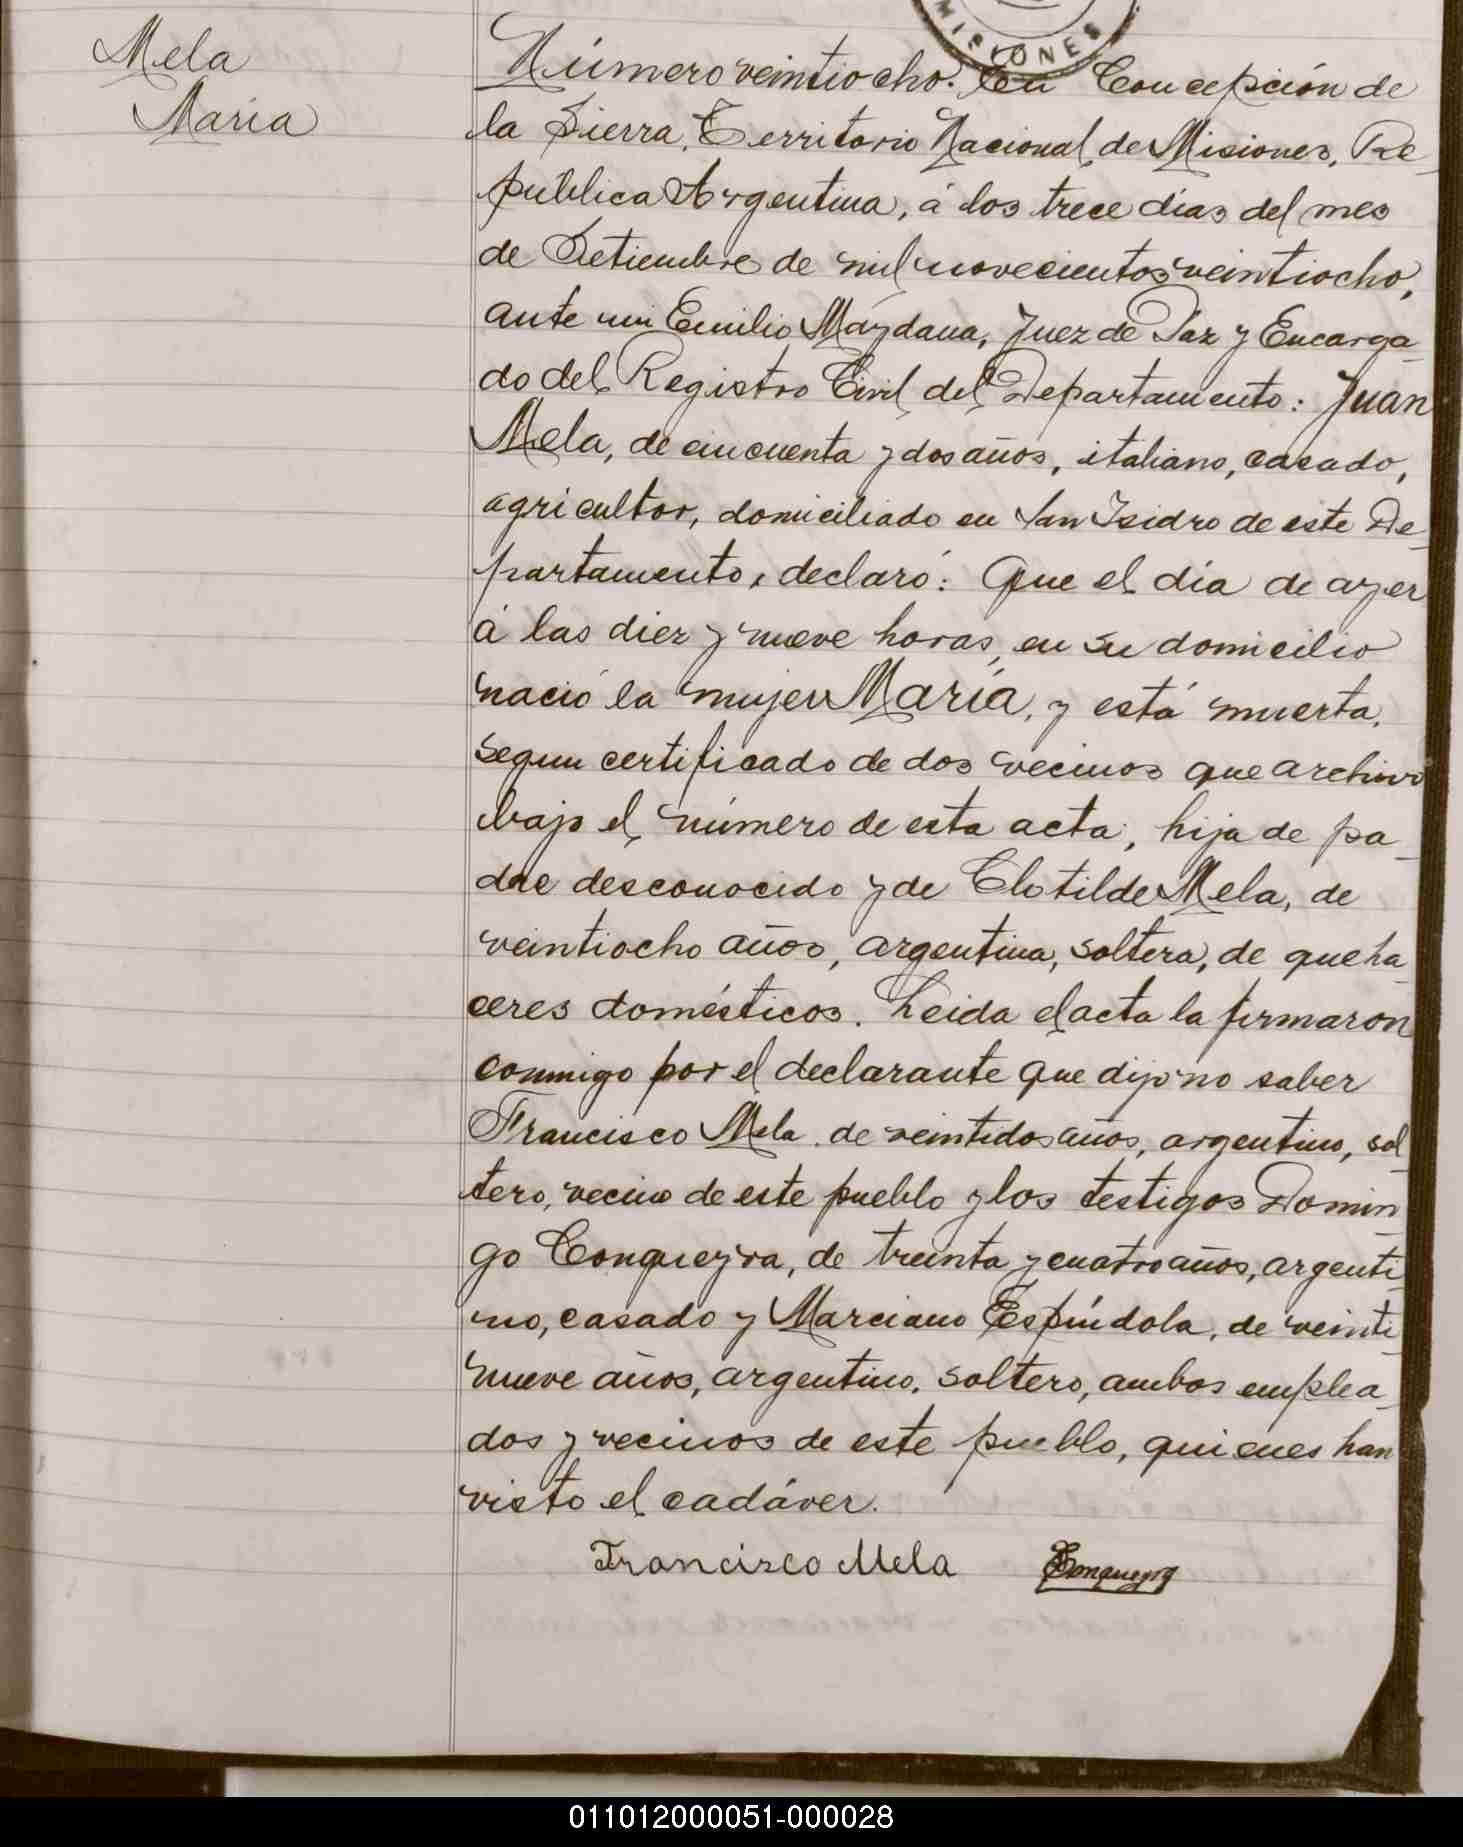 MISIONES
Mela
María
Número veintiocho. En Concepción de
la Sierra, Territorio Nacional de Misiones, Re-
pública Argentina, á los trece dias del mes
de Setiembre de mil novecientos veintiocho,
ante mi Emilio Máydana, Juez de Paz y Encarga-
do del Registro Civil del Departamento: Juan
Mela, de cincuenta y dos años, italiano, casado,
agricultor, domiciliado en San Isidro de este De-
partamento, declaró: Que el día de ayer
á las diez y nueve horas, en su domicilio
nació la mujer María, y está muerta,
segun certificado de dos vecinos que archivo
bajo el número de esta acta, hija de pa-
dre desconocido y de Clotilde Mela, de
veintiocho años, argentina, soltera, de queha-
ceres domésticos. Leida el acta la firmaron
conmigo por el declarante que dijo no saber
Francisco Mela de veintidos años, argentino, sol-
tero, vecino de este pueblo y los testigos Domin-
go Conqueyra, de treinta y cuatro años, argenti-
no, casado y Marciano Espíndola, de veinti-
nueve años, argentino, soltero, ambos emplea-
dos y vecinos de este pueblo, quienes han
visto el cadáver.
Francisco Mela Conqueyra
011012000051-000028